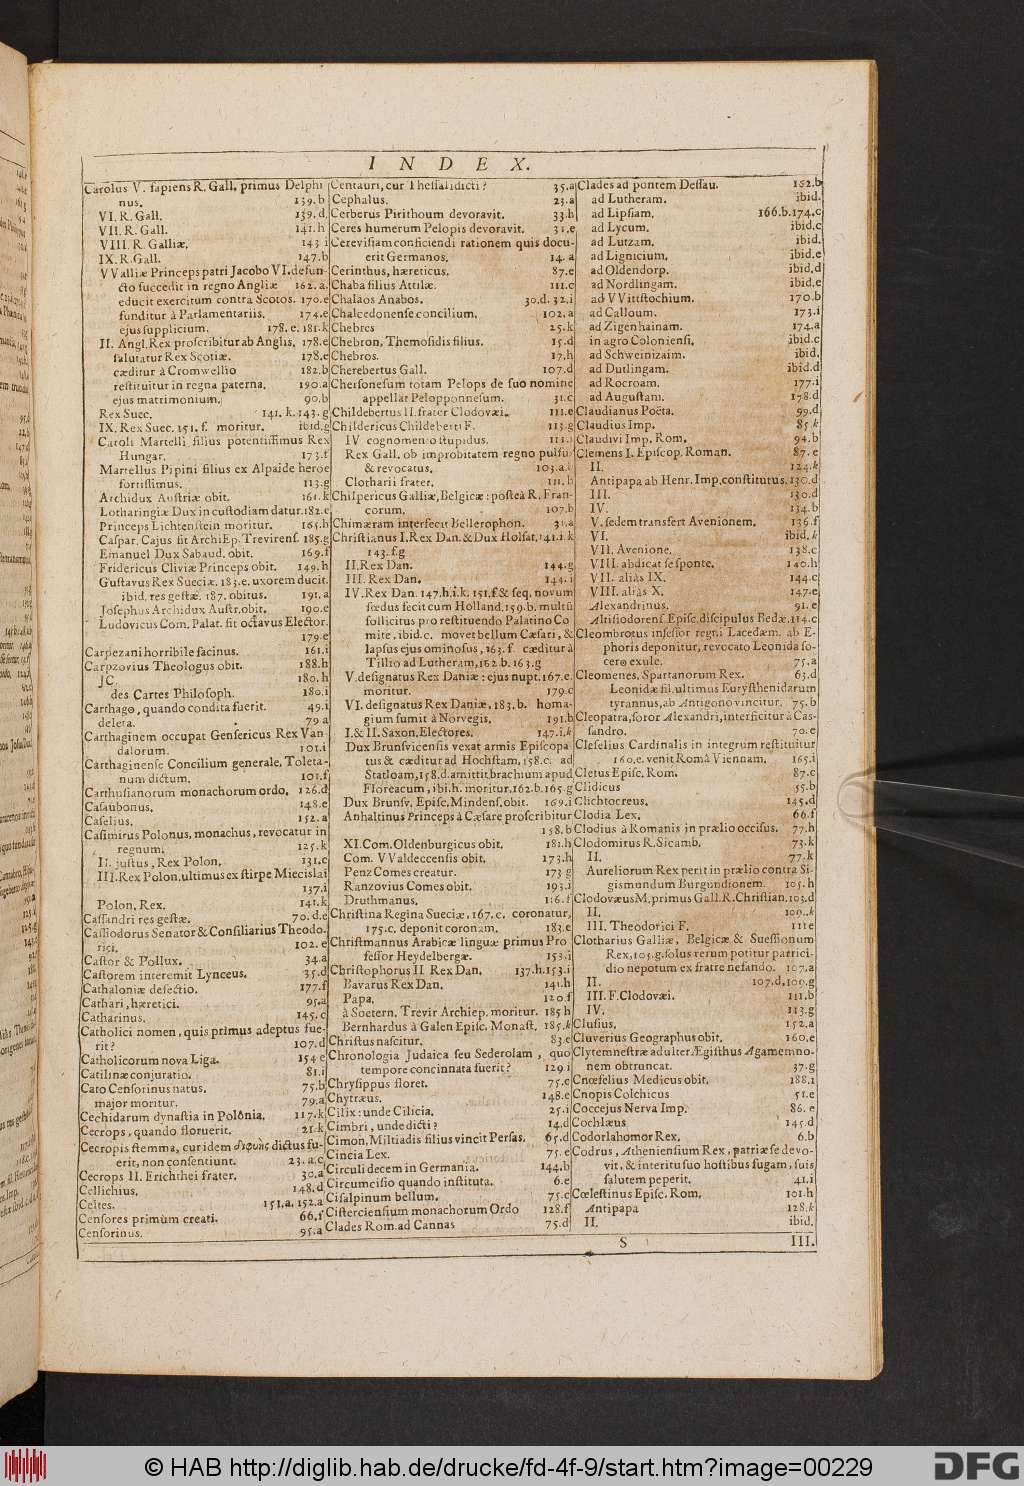 INDEX.
Carolus V. sapiens R. Gall. primus Delphi
nus. 139.b
VI. R. Gall. 139.d
VII. R. Gall. 141.h
VIII. R. Galliæ. 143 i
IX. R. Gall. 147.b
VValliæ Princeps patri Jacobo VI. defun-
cto succedit in regno Angliæ 162.a.
educit exercitum contra Scotos. 170.e
funditur à Parlamentariis. 174.e
ejus supplicium. 178.e. 181.k
II. Angl. Rex proscribitur ab Anglis, 178.e
salutatur Rex Scotiæ. 178.e
cæditur à Cromwellio 182.b
restituitur in regna paterna. 190.a
ejus matrimonium. 90.b
Rex Suec. 141.k.143.g
IX. Rex Suec. 151.f. moritur. ibid.g
Caroli Martelli filius potentissimus Rex
Hungar. 173.f
Martellus Pipini filius ex Alpaide heroe
fortissimus. 113.g
Archidux Austriæ obit. 161.k
Lotharingiæ Dux in custodiam datur. 182.e
Princeps Lichtenstein moritur. 165.b
Caspar. Cajus fit ArchiEp. Trevirens. 185.g
Emanuel Dux Sabaud. obit. 169.f
Fridericus Cliviæ Princeps obit. 149.h
Gustavus Rex Sueciæ. 183.e. uxorem ducit.
ibid. res gestæ. 187. obitus. 191.a
Josephus Archidux Austr. obit. 190.e
Ludovicus Com. Palat. fit octavus Elector.
179 e
Carpezani horribile facinus. 161.i
Carpzovius Theologus obit. 188.h
JC. 180.h
des Cartes Philosoph. 180.i
Carthago, quando condita fuerit. 49.i
deleta. 79 a
Carthaginem occupat Gensericus Rex Van
dalorum. 101.i
Carthaginense Concilium generale. Toleta-
num dictum. 101.f
Carthusianorum monachorum ordo. 126.d
Casaubonus. 148.e
Caselius. 152.a
Casimirus Polonus, monachus, revocatur in
regnum. 125.k
II. justus, Rex Polon. 131.c
III. Rex Polon. ultimus ex stirpe Miecislai
137.i
Polon. Rex. 141.k
Cassandri res gestæ. 70.d.e
Cassiodorus Senator & Consiliarius Theodo-
rici. 102.e
Castor & Pollux. 34.a
Castorem interemit Lynceus. 35.d
Cathaloniæ defectio. 177.f
Cathari, hæretici. 95.a
Catharinus. 145.c
Catholici nomen, quis primus adeptus fue-
rit? 107.d
Catholicorum nova Liga. 154 e
Catilinæ conjuratio. 81.i
Cato Censorinus natus. 75.b
major moritur. 79.a
Cechidarum dynastia in Polonia. 117.k
Cecrops, quando floruerit. 21.k
Cecropis stemma, cur idem διφυὴς dictus fu-
erit, non consentiunt. 23.a.c
Cecrops II. Erichthei frater. 30.a
Cellichius. 148.d
Celtes. 151.a.152.a
Censores primùm creati. 66.f
Censorinus. 95.a
Centauri, cur Thessali dicti? 35.a
Cephalus. 23.a
Cerberus Pirithoum devoravit. 33.b
Ceres humerum Pelopis devoravit. 31.e
Cerevisiam conficiendi rationem quis docu-
erit Germanos. 14.a
Cerinthus, hæreticus. 87.e
Chaba filius Attilæ. 111.c
Chalaos Anabos. 30.d. 32.i
Chalcedonense concilium. 102.a
Chebres 25.k
Chebron, Themosidis filius. 15.d
Chebros. 17.h
Cherebertus Gall. 107.d
Chersonesum totam Pelops de suo nomine
appellat Pelopponnesum. 31.c
Childebertus II. frater Clodovæi. 111.e
Childericus Childeberti F. 113.g
IV cognomento stupidus.
Rex Gall. ob improbitatem regno pulsu
& revocatus. 103.a.
Clotharii frater. 111.b
Chilpericus Galliæ, Belgicæ: posteà R. Fran-
corum. 107.b
Chimæram interfecit Bellerophon. 31.a
Christianus I. Rex Dan. & Dux Holsat. 141.i.k
143.f.g
II. Rex Dan. 144.g
III. Rex Dan. 144.i
IV. Rex Dan. 147.h.i.k. 151.f & seq. novum
fœdus fecit cum Holland. 159.b. multū
sollicitus pro restituendo Palatino Co
mite, ibid.c. movet bellum Cæsari, &
lapsus ejus ominosus, 163.f. cæditur à
Tillio ad Lutheram, 162.b. 163.g
V. designatus Rex Daniæ: ejus nupt. 167.e.
moritur. 179.c
VI. designatus Rex Daniæ, 183.b. homa-
gium sumit à Norvegis. 191.b
I. & II. Saxon. Electores. 147.i.k
Dux Brunsvicensis vexat armis Episcopa
tus & cæditur ad Hochstam, 158.c. ad
Statloam, 158.d. amittit brachium apud
Floreacum, ibi.h. moritur. 162.b.165.g
Dux Brunsv. Episc. Mindens. obit. 169.i
Anhaltinus Princeps à Cæsare proscribitur
158.b
XI. Com. Oldenburgicus obit. 181.h
Com. VValdeccensis obit. 173.h
Penz Comes creatur. 173 g
Ranzovius Comes obit. 193.i
Druthmanus. 116.f
Christina Regina Sueciæ. 167.c. coronatur,
175.c. deponit coronam. 183.e
Christmannus Arabicæ linguæ primus Pro
fessor Heydelbergæ. 153.i
Christophorus II Rex Dan. 137.h.153.i
Bavarus Rex Dan. 141.h
Papa. 120.f
à Soetern. Trevir Archiep. moritur. 185 h
Bernhardus à Galen Episc. Monast. 185.k
Christus nascitur. 83.e
Chronologia Judaica seu Sederolam, quo
tempore concinnata fuerit? 129 i
Chrysippus floret. 75.e
Chytræus. 148.e
Cilix: unde Cilicia. 25.i
Cimbri, unde dicti? 14.d
Cimon, Miltiadis filius vincit Persas. 65.d
Cincia Lex. 75.e
Circuli decem in Germania. 144.b
Circumcisio quando instituta. 6.e
Cisalpinum bellum. 75.c
Cisterciensium monachorum Ordo 128.f
Clades Rom. ad Cannas 75.d
Clades ad pontem Dessau. 162.b
ad Lutheram. ibid.
ad Lipsiam. 166.b.174.c
ad Lycum. ibid.c
ad Lutzam. ibid.
ad Lignicium. ibid.e
ad Oldendorp. ibid.d
ad Nordlingam. ibid.e
ad VVittstochium. 170.b
ad Calloum. 173.i
ad Zigenhainam. 174.a
in agro Coloniensi. ibid.c
ad Schweinizaim. ibid.
ad Dutlingam. ibid.d
ad Rocroam. 177.i
ad Augustam. 178.d
Claudianus Poëta. 99.d
Claudius Imp. 85.k
Claudivi Imp. Rom. 94.b
Clemens I. Episcop. Roman. 87.e
II. 124.k
Antipapa ab Henr. Imp. constitutus. 130.d
III. 130.d
IV. 134.b
V. sedem transfert Avenionem. 136.f
VI. ibid.k
VII. Avenione. 138.c
VIII. abdicat se sponte. 140.h
VII. aliàs IX. 144.c
VIII. aliàs X. 147.e
Alexandrinus. 91.e
Altisiodorens. Episc. discipulus Bedæ. 114.c
Cleombrotus insessor regni Lacedæm. ab E-
phoris deponitur, revocato Leonida so-
cero exule. 75.a
Cleomenes, Spartanorum Rex. 63.d
Leonidæ fil. ultimus Eurysthenidarum
tyrannus, ab Antigono vincitur. 75.b
Cleopatra, soror Alexandri, interficitur à Cas-
sandro. 70.e
Cleselius Cardinalis in integrum restituitur
160.e. venit Româ Viennam. 165.i
Cletus Episc. Rom. 87.c
Clidicus 55.b
Clichtoreus. 145.d
Clodia Lex. 66.f
Clodius à Romanis in prælio occisus. 77.h
Clodomirus R. Sicamb. 73.k
II. 77.k
Aureliorum Rex perit in prælio contra Si-
gismundum Burgundionem. 105.h
Clodovæus M. primus Gall. R. Christian. 103.d
II. 109.k
III. Theodorici F. 111 e
Clotharius Galliæ, Belgicæ & Suessionum
Rex, 105.g. solus rerum potitur parrici-
dio nepotum ex fratre nefando. 107.a
II. 107.d, 109.g
III. F. Clodovæi. 111.b
IV. 113.g
Clusius. 152.a
Cluverius Geographus obit. 160.e
Clytemnestræ adulter Ægisthus Agamemno-
nem obtruncat. 37.g
Cnœfelius Medicus obit. 188.i
Cnopis Colchicus 51.e
Coccejus Nerva Imp. 86.e
Cochlæus 145.d
Codorlahomor Rex. 6.b
Codrus, Atheniensium Rex, patriæ se devo-
vit, & interitu suo hostibus fugam, suis
salutem peperit. 41.i
Cœlestinus Episc. Rom. 101.h
Antipapa 128.k
II. ibid.
S III.
© HAB http://diglib.hab.de/drucke/fd-4f-9/start.htm?image=00229
DFG